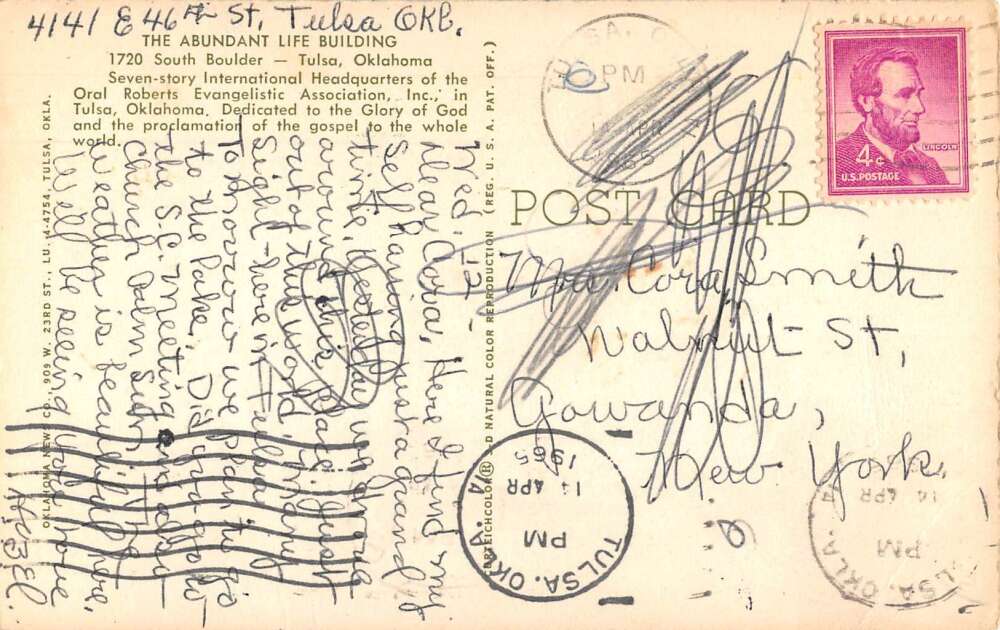 4141 E 46th St, Tulsa Okl.
THE ABUNDANT LIFE BUILDING
1720 South Boulder — Tulsa, Oklahoma
Seven-story International Headquarters of the
Oral Roberts Evangelistic Association, Inc., in
Tulsa, Oklahoma. Dedicated to the Glory of God
and the proclamation of the gospel to the whole
world.
Wed.
Dear Cora, Here I find my
self having just a grand
time. Yesterday we were
around this place just
out of this world
sight here in Tulsa
Tomorrow we plan to go
to the Lake. Did you go to
the S.C. Meeting and also
church Palm Sun,
Weather is beautiful here,
Well be seeing you home
OKLAHOMA NEWS CO., 909 W. 23RD ST., LU. 4-4754, TULSA, OKLA.
NATURAL COLOR REPRODUCTION (REG. U. S. A. PAT. OFF.)
POST CARD
Mrs Cora Smith
Walnut St,
Gowanda,
New York.
LINCOLN
4¢
U.S. POSTAGE
PM
1965
TULSA, OKLA.
PM
14 APR
1965
PM
14 APR